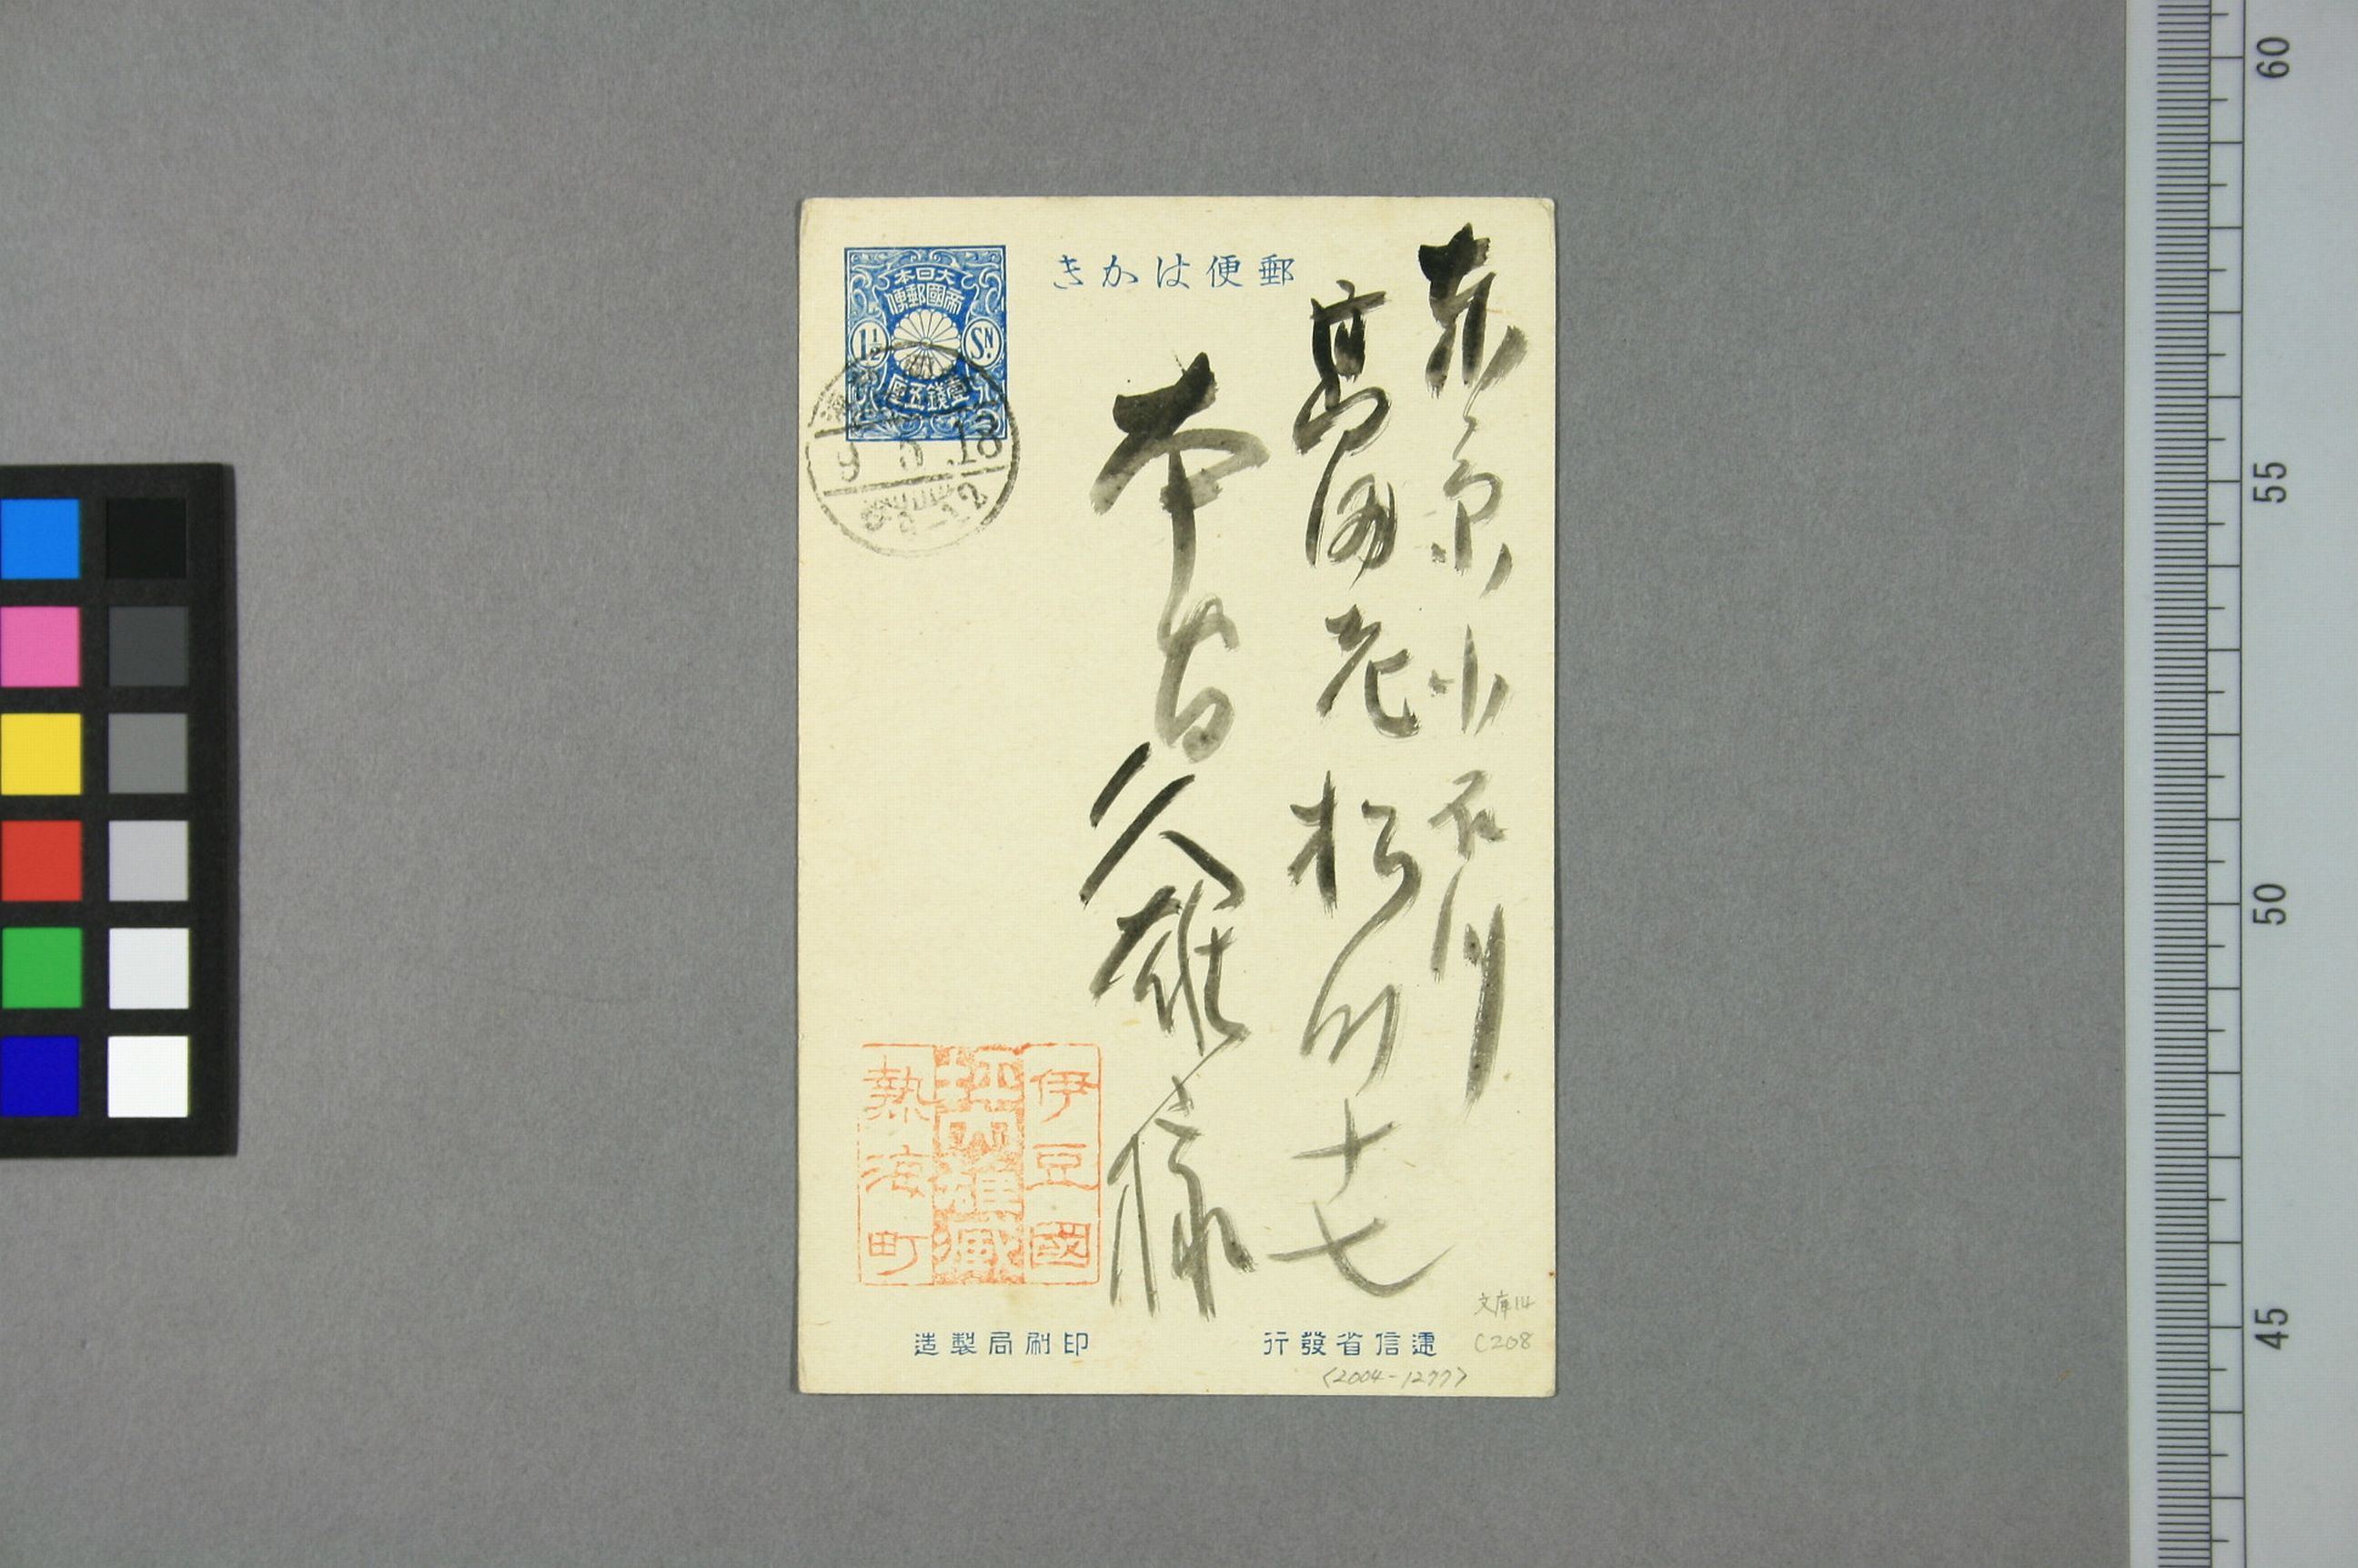 郵便はかき
大日本
帝國郵便
1½
SN.
壹錢五厘
9 5 13
東京小石川
高田老松町十七
本間久雄様
伊豆國
坪内雄藏
熱海町
遞信省發行
印刷局製造
文庫14
C208
<2004-1277>
60
55
50
45